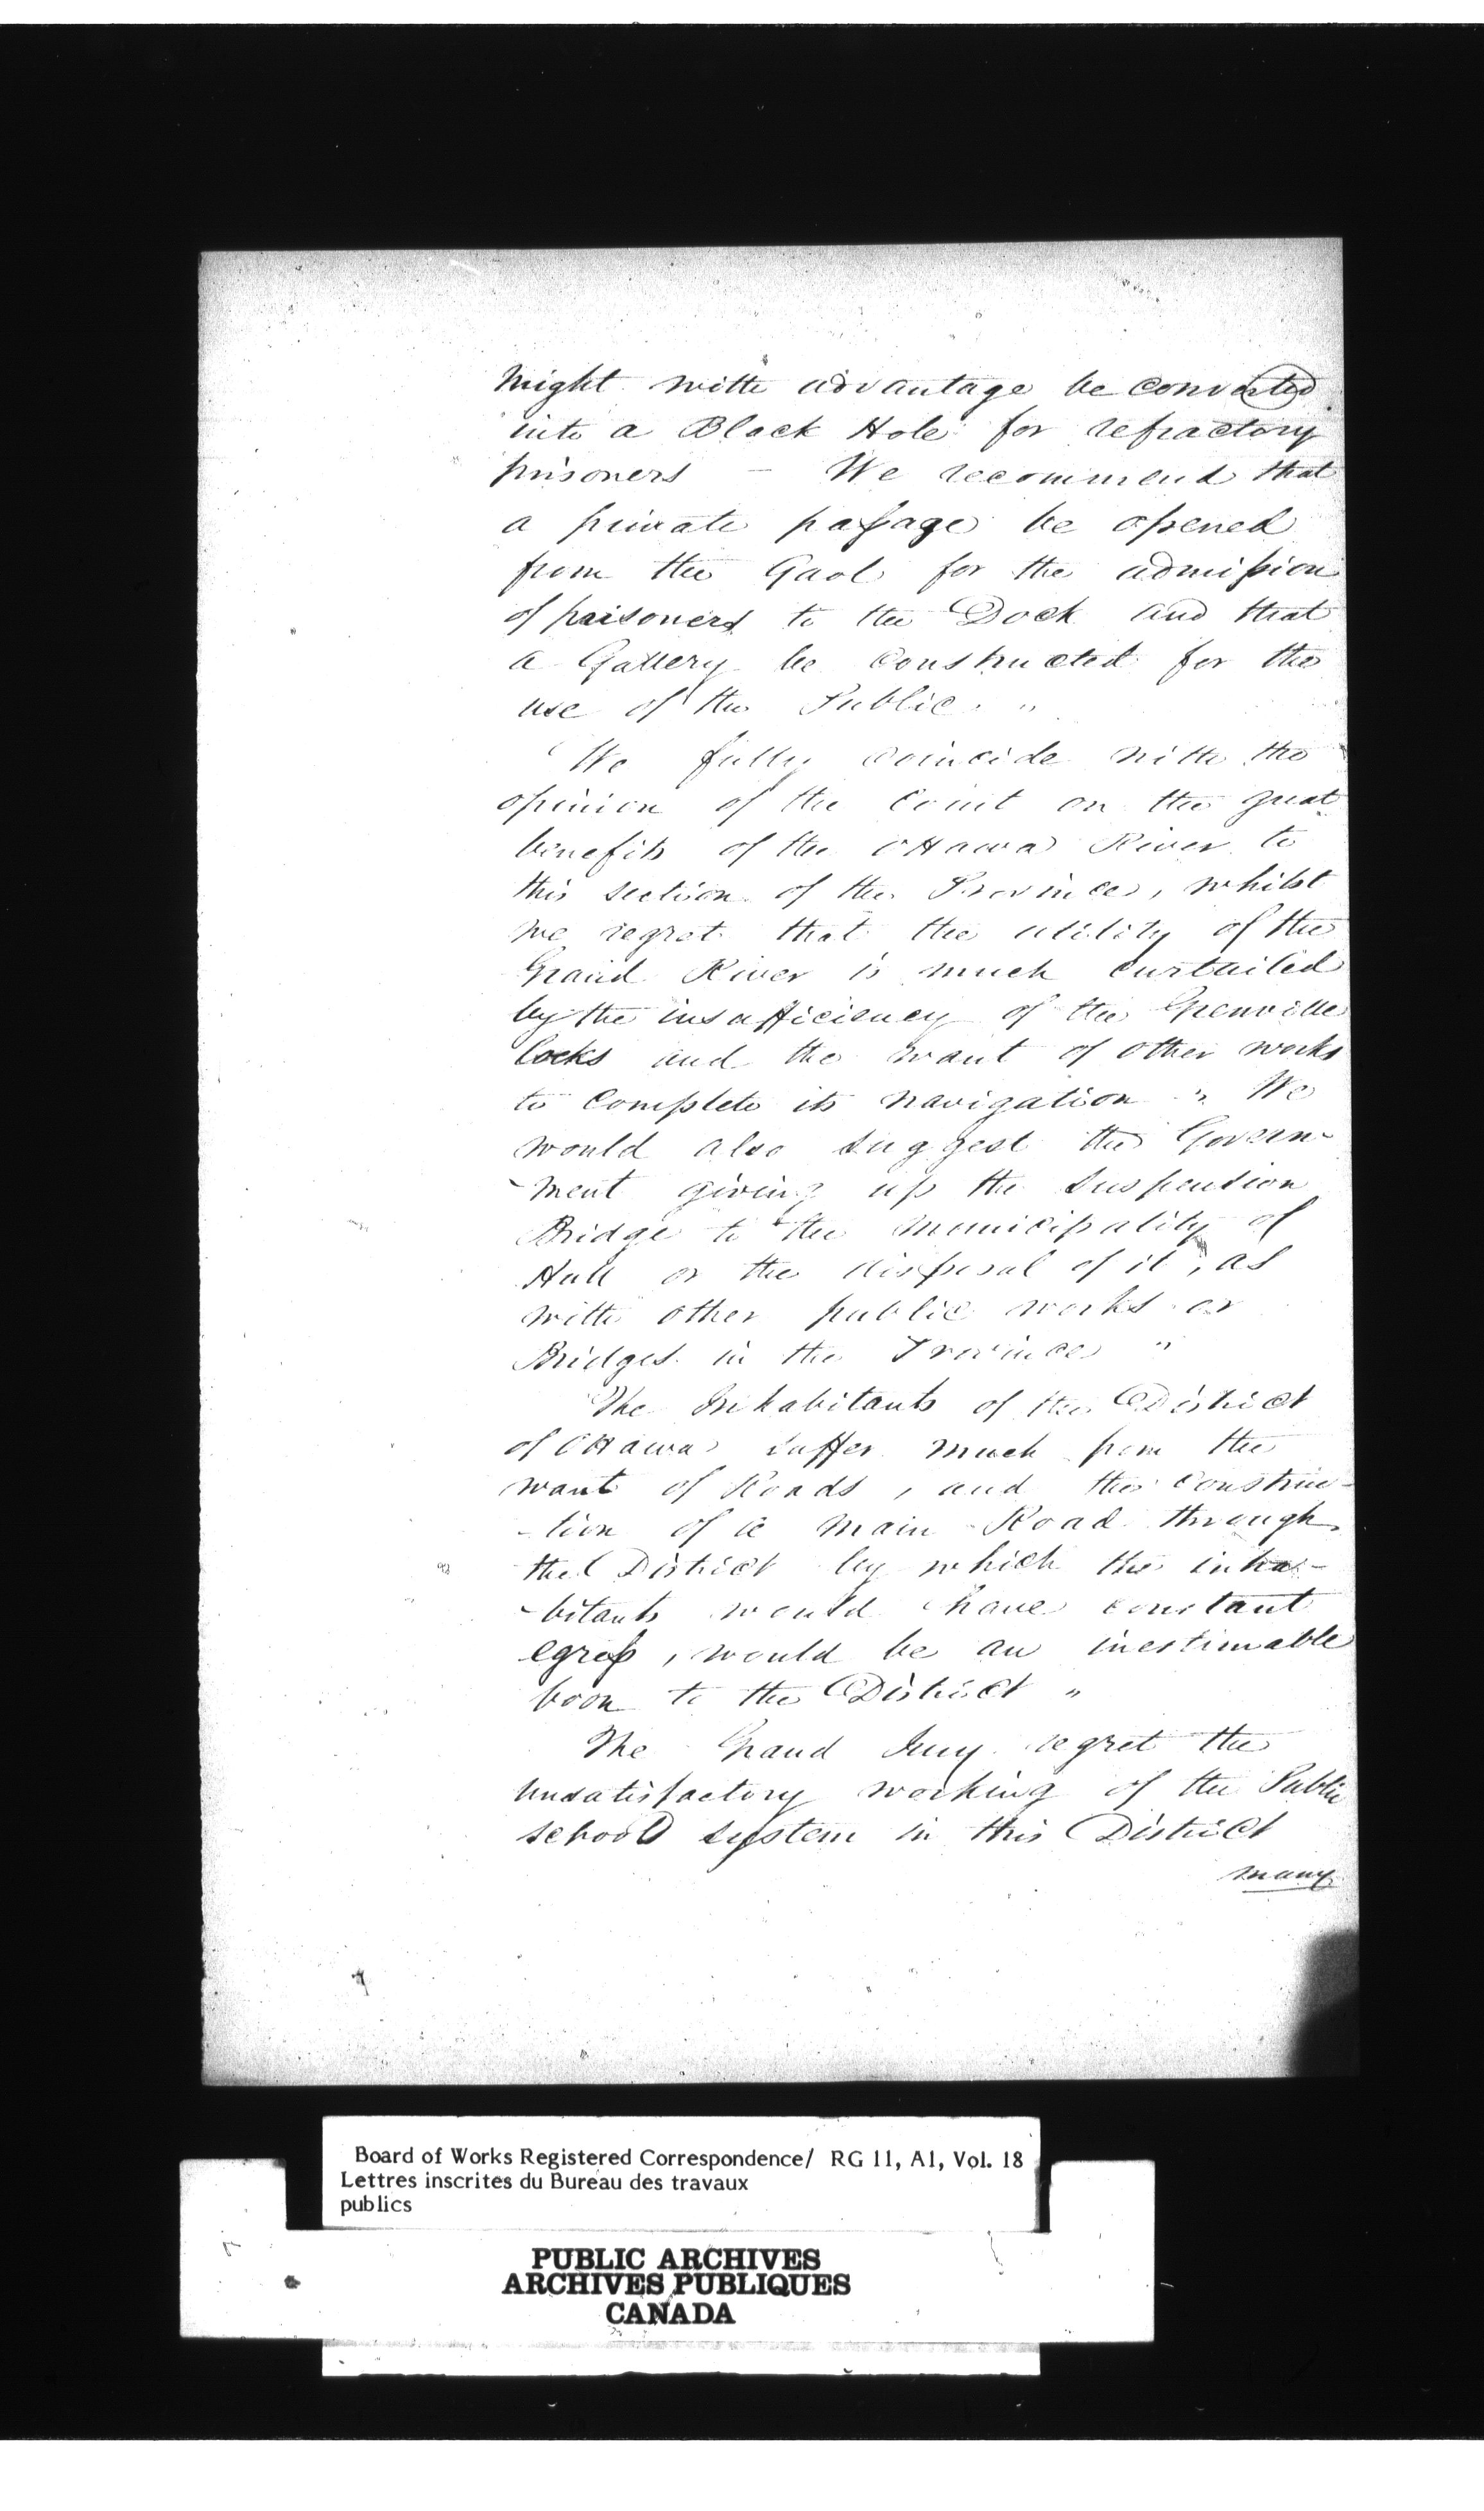 might with advantage be converted
into a Black Hole for refractory
prisoners – We recommend that
a private passage be opened
from the Gaol for the admission
of prisoners to the Dock and that
a Gallery be constructed for the
use of the Public "
We fully coincide with the
opinion of the Court on the great
benefits of the Ottawa River to
this section of the Province, whilst
we regret that the utility of the
Grand River is much curtailed
by the insufficiency of the Grenville
locks and the want of other works
to complete its navigation " We
would also suggest the Govern-
-ment giving up the Suspension
Bridge to the Municipality of
Hull or the disposal of it, as
with other public works or
Bridges in the Province "
The Inhabitants of the District
of Ottawa suffer much from the
want of Roads, and the construc-
-tion of a main Road through
the District by which the inha-
-bitants would have constant
egress, would be an inestimable
boon to the District "
The Grand Jury regret the
unsatisfactory working of the Public
school system in this District
many
Board of Works Registered Correspondence/ RG 11, A1, Vol. 18
Lettres inscrites du Bureau des travaux
publics
PUBLIC ARCHIVES
ARCHIVES PUBLIQUES
CANADA